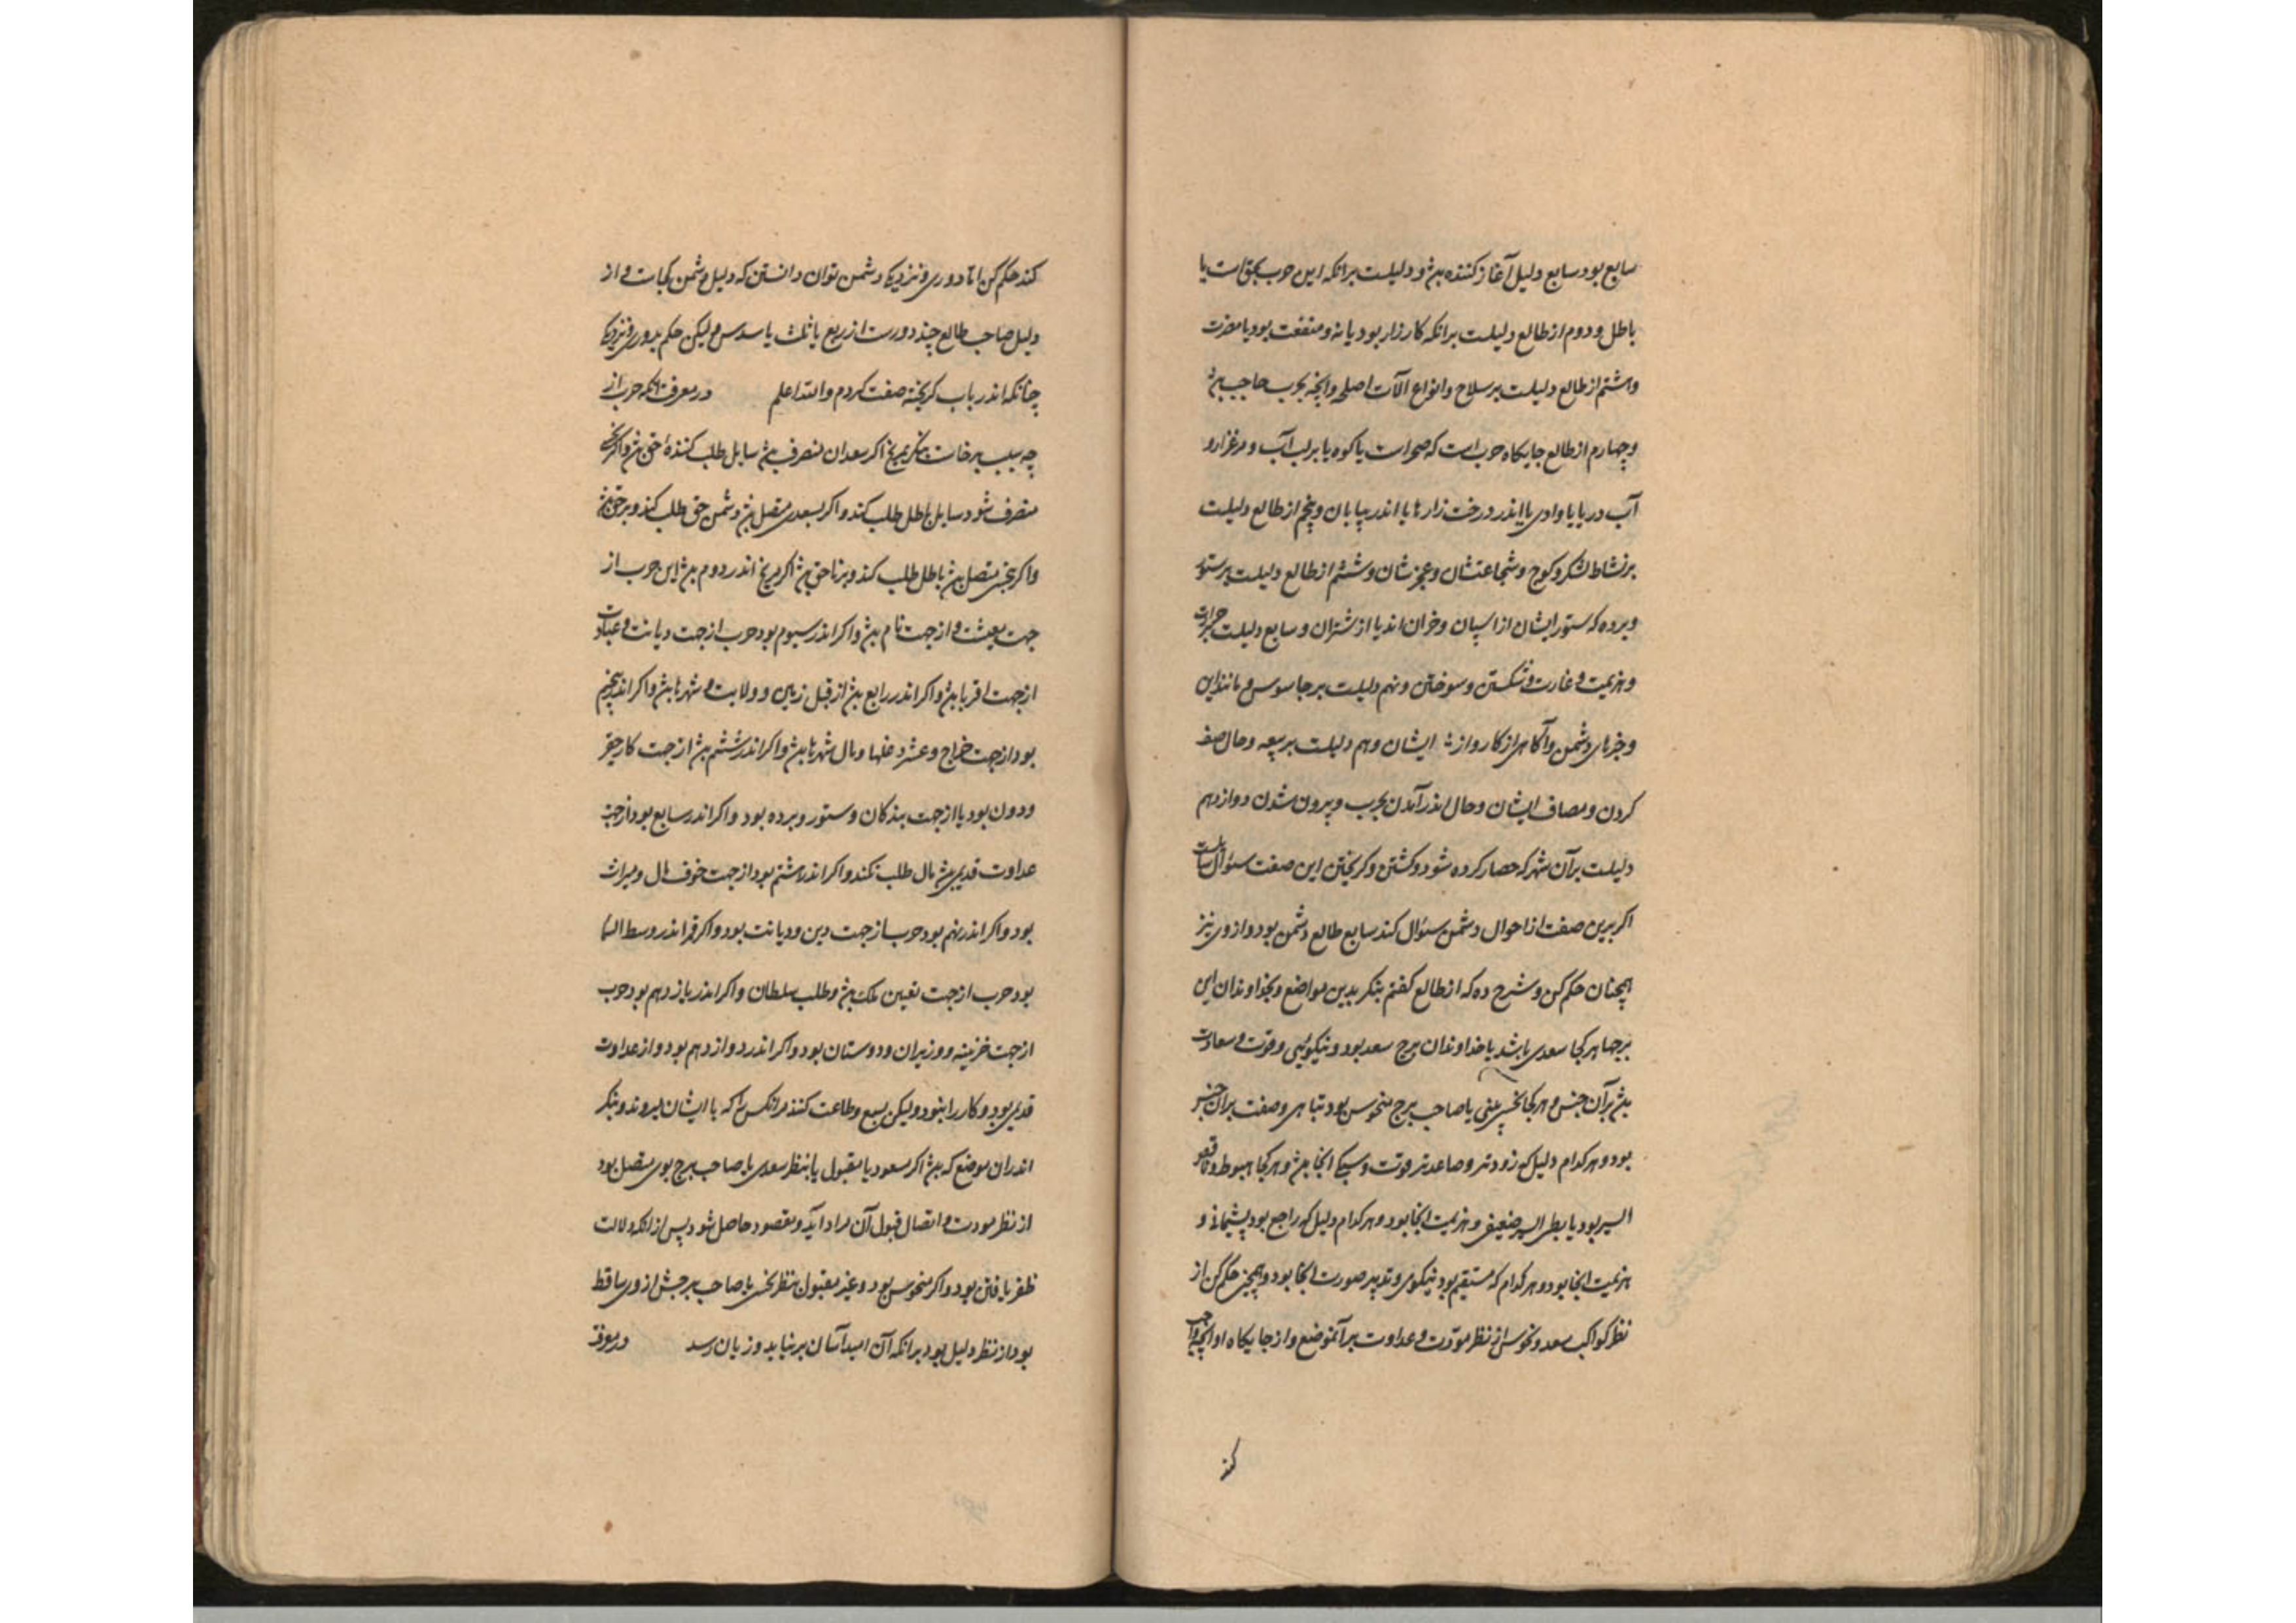 سابع بود سابع دلیل آغاز کننده بود و دلیلست برانکه این حرب بحق است یا
باطل و دوم از طالع دلیلست برانکه کارزار بود یا نه و منفعت بود یا مضرت
وهشتم از طالع دلیلست بر سلاح وانواع آلات اصلحه وانچه بحرب حاجب
وچهارم از طالع جایکاه حرب است که صحراست یا کوه یا بر لب آب و مرغزار و
آب دریا یا وادی یا اندر درخت زارها یا اندر بیابان وپنجم از طالع دلیلست
بر نشاط لشکر و کوچ و شجاعتشان وعجزشان وششم از طالع دلیلست بر ستور
وبرده که ستور ایشان از اسپان وخران اند یا از شتران و سابع دلیلست
وهزیمت و غارت و شکستن وسوختن ونهم دلیلست بر جاسوس و مانند این
وخبرهای دشمن وآکاهی از کار و ایشان ودهم دلیلست بر وحال صف
کردن ومصاف ایشان وحال اندر آمدن بحرب وبیرون شدن دوازدهم
دلیلست بر آن شهر که حصار کرده شود وکشتن وکریختن این صفت سئوال
اکر برین صفت از احوال دشمن سئوال کند سابع طالع دشمن بود واز وی نیز
همچنان حکم کن و شرح ده که از طالع کفتم بنکر بدین مواضع وبخداوندان این
برجها هر کجا سعدی باشد یا خداوندان برج سعد بود ونیکویی وقوت و سعادت
بر آن جنس و هر کجا نحس بینی یا صاحب برج منحوس بود تباهی وصفت بران جنس
بود وهر کدام دلیل که زودتر وصاعدتر قوت و انجا وهر کجا هبوط و
السیر بود یا بطی السیر ضعیفی وهزیمت انجا بود وهر کدام دلیل که راجع بود پشیمانی و
هزیمت انجا بود وهر کدام که مستقیم بود نیکوی وتدبیر صورت انجا بود وهمچنین حکم کن از
نظر کواکب سعد ونحوس از نظر مودت و عداوت بر آنموضع واز جایکاه او
کند
کند حکم کن اما دوری و نزدیکی دشمن توان دانستن که دلیل دشمن کجاست و از
دلیل صاحب طالع چند دورست از ربع یا ثلث یا سدس ولیکن حکم بدوری ونزدیکی
چنانکه اندر باب کریخته صفت کردم والله اعلم در معرفت انکه حرب از
چه سبب برخاست بنکر بمریخ اکر سعدان منصرف سایل طلب کننده حق
منصرف شود سایل باطل طلب کند واکر بسعدی متصل دشمن حق طلب کند وبر حق
واکر بنحس متصل باطل طلب کند وبر ناحق اکر مریخ اندر دوم این حرب از
جهت معیشت و از جهت نام واکر اندر سیوم بود حرب از جهت دیانت و عبادت
از جهت اقربا واکر اندر رابع از قبل زمین و ولایت و شهرها واکر اندر پنجم
بود از جهت خراج وعشر ومال شهرها واکر اندر ششم از جهت کار حقیر
ودون بود یا از جهت بندکان وستور وبرده بود واکر اندر سابع بود از جهت
عداوت قدیمی مال طلب نکند واکر اندر هشتم بود از جهت خوف مال ومیراث
بود واکر اندر نهم بود حرب از جهت دین ودیانت بود واکر قمر اندر وسط السما
بود حرب از جهت تعیین ملک وطلب سلطان واکر اندر یازدهم بود حرب
از جهت خزینه ووزیران ودوستان بود واکر اندر دوازدهم بود و از عداوت
قدیمی بود وکار را بنود ولیکن وطاعت کنند مرانکس را که با ایشان نیرو وبنکر
اندران موضع که اکر مسعود یا مقبول یا بنظر سعدی یا صاحب برج بوی متصل بود
از نظر مودت و اتصال قبول آن مراد آید ومقصود حاصل شود پس از انکه دلالت
ظفر یافتن بود واکر منحوس بود وغیر مقبول بنظر نحس یا صاحب برجش از وی ساقط
بود از نظر دلیل بود برانکه آن امید آسان برنیاید وزیان رسد در معرفت